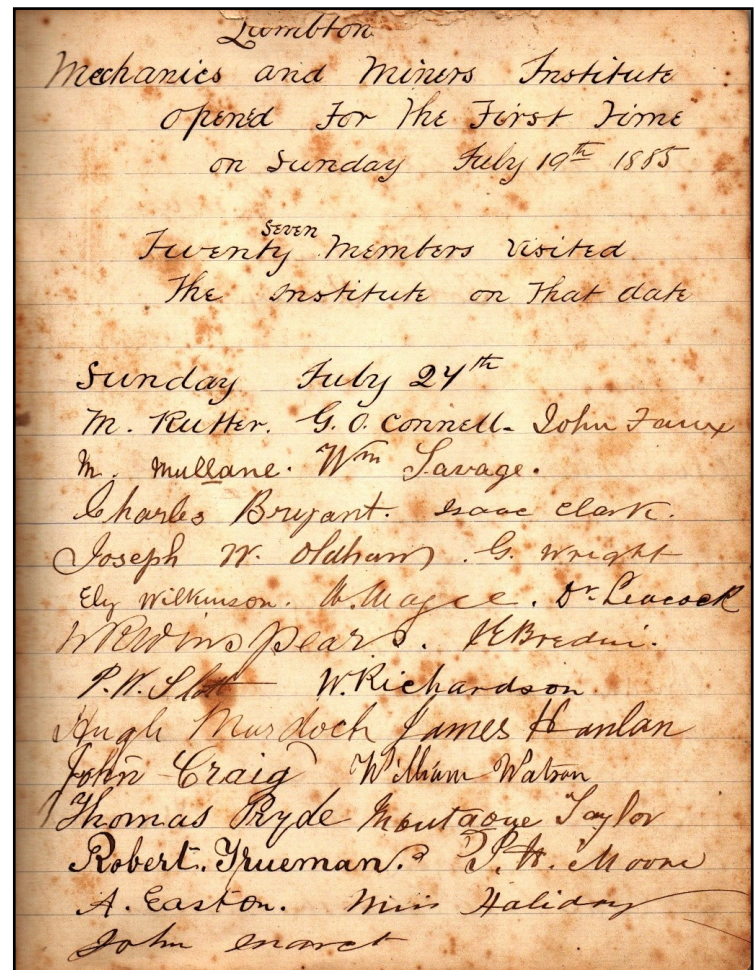 Lumbton
Mechanics and Miners Institute
open'd For The First Time
on Sunday July 19th 1885
Seven
Twenty Members Visited
The institute on That date
Sunday July 24th
M. Rutter. G. O. Connell. John
M. Mullane. Wm Savage.
Charles Bryant. Isaac Clark.
Joseph W. Oldham. G. Wright
Ely Wilkinson. W. Magee. Dr. Leacock
Winspears.
P. W. W. Richardson
Hugh Murdoch James Hanlan
John Craig William Watson
Thomas Pryde Montague Taylor
Robert. Trueman. Moore
A. Easton. Miss Haliday
John